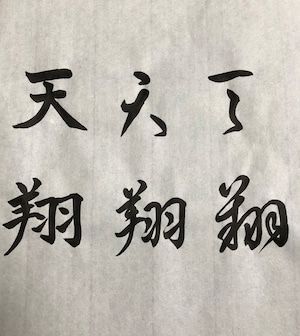 天天天
翔翔翔